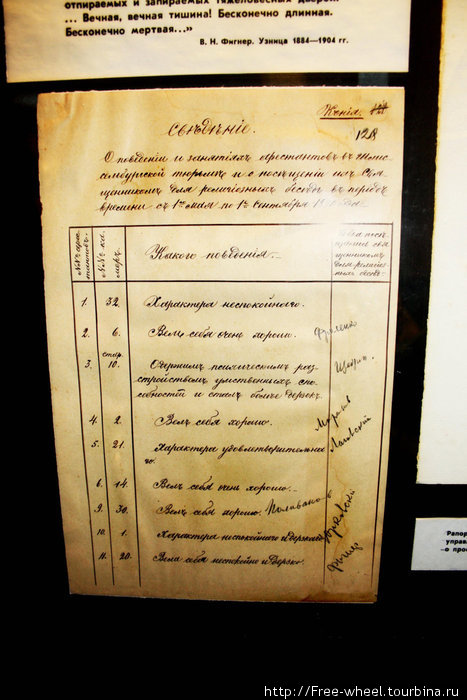 отпираемых и запираемых тяжеловесных двере...
... Вечная, вечная тишина! Бесконечно длинная.
Бесконечно мертвая...»
В. Н. Фигнер. Узница 1884—1904 гг.
Копія.
128
Свѣдѣніе.
О поведеніи и занятіяхъ арестантовъ въ Шлис-
сельбургской тюрьмѣ и о посѣщеніи ихъ свя-
щенникомъ для религіозныхъ бесѣдъ въ періодъ
времени съ 1го мая по 1е Сентября
№№ арес-
тантовъ.
№№ ка-
меръ.
Какого поведенія.
1. 32. Характера неспокойнаго.
2. 6. Велъ себя очень хорошо. Фроленко
3. стар. 10. Одержимъ психическимъ раз-
стройствомъ умственныхъ спо-
собностей и сталъ болѣе дерзокъ.
Щедрин.
4. 2. Велъ себя хорошо.
5. 21. Характера удовлетворительна-
го.
Лаговский
6. 14. Велъ себя очень хорошо.
9. 30. Велъ себя хорошо. Поливанов
10. 1. Характера неспокойнаго и дерзкаго. Юрковский
11. 20. Вела себя неспокойно и дерзко. Фигнер
Рапор
управ
о про
http://Free-wheel.tourbina.ru/